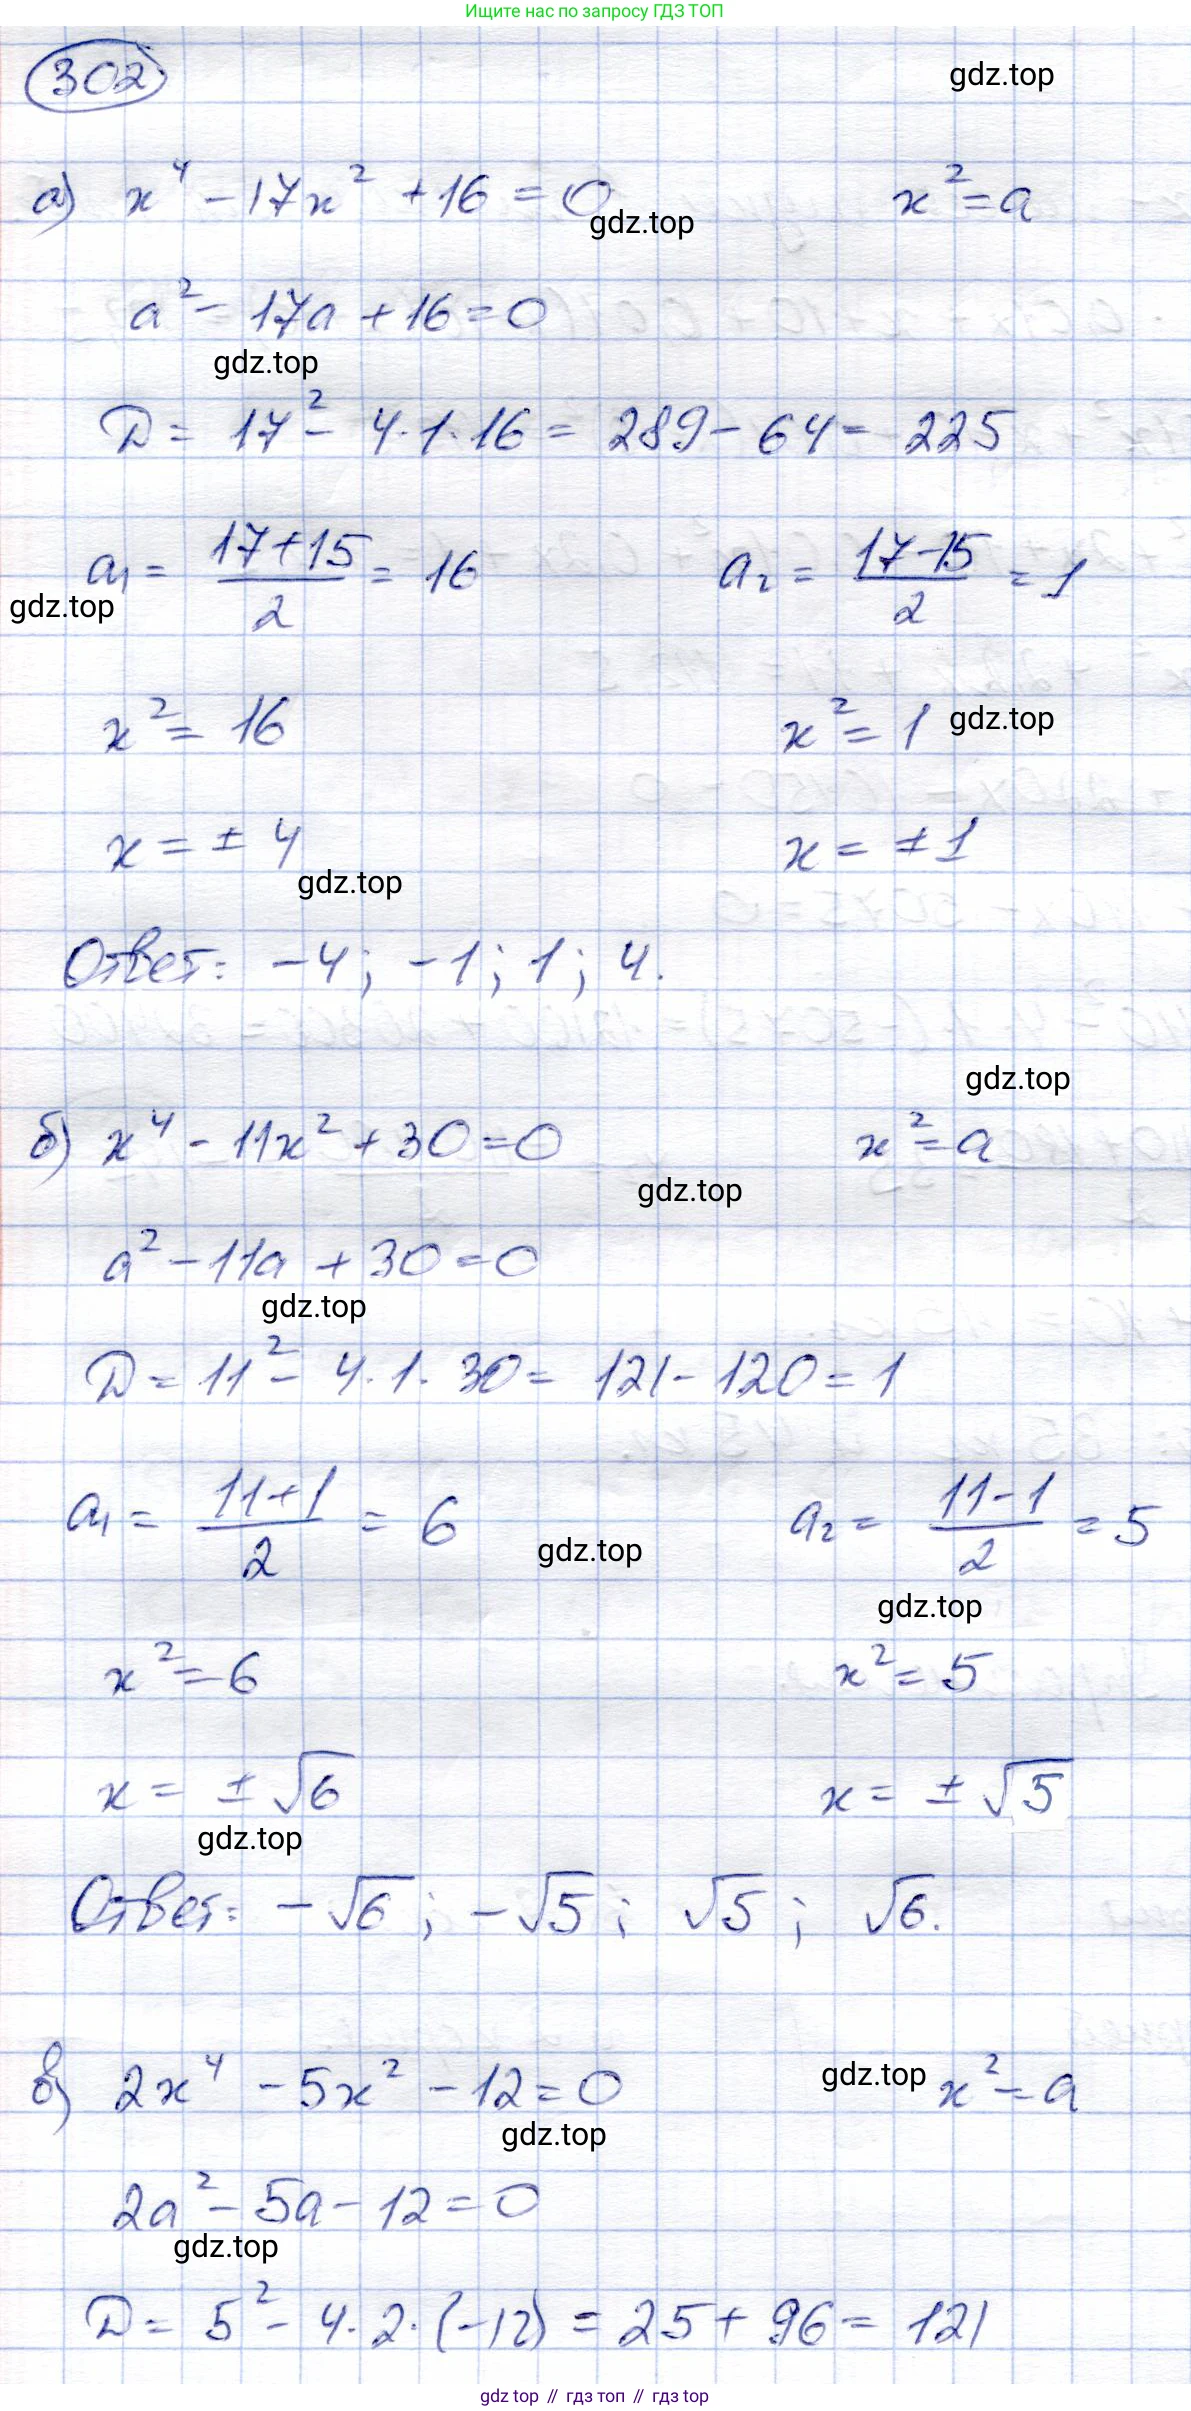 Ищите нас по запросу ГДЗ ТОП
302
gdz.top
а) x⁴ - 17x² + 16 = 0 x² = a
gdz.top
a² - 17a + 16 = 0
gdz.top
D = 17² - 4·1·16 = 289 - 64 = 225
a₁ = (17+15)/2 = 16 a₂ = (17-15)/2 = 1
gdz.top
x² = 16 x² = 1 gdz.top
x = ± 4 x = ± 1
gdz.top
Ответ: -4; -1; 1; 4.
gdz.top
б) x⁴ - 11x² + 30 = 0 x² = a
gdz.top
a² - 11a + 30 = 0
gdz.top
D = 11² - 4·1·30 = 121 - 120 = 1
a₁ = (11+1)/2 = 6 a₂ = (11-1)/2 = 5
gdz.top
gdz.top
x² = 6 x² = 5
x = ± √6 x = ± √5
gdz.top
Ответ: -√6; -√5; √5; √6.
в) 2x⁴ - 5x² - 12 = 0 gdz.top x² = a
gdz.top
2a² - 5a - 12 = 0
gdz.top
D = 5² - 4·2·(-12) = 25 + 96 = 121
gdz top // гдз топ // гдз top